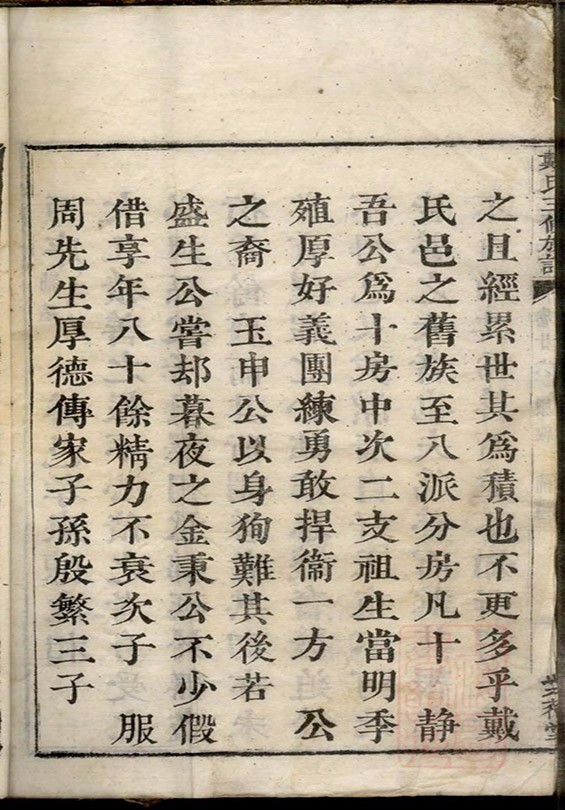 之且經累世其爲積也不更多乎戴
氏邑之舊族至八派分房凡十 静
吾公爲十房中次二支祖生當明季
殖厚好義團練勇敢捍衞一方 公
之裔 玉申公以身狥難其後若
盛生公嘗却暮夜之金秉公不少假
借享年八十餘精力不衰次子 服
周先生厚德傳家子孫殷繁三子